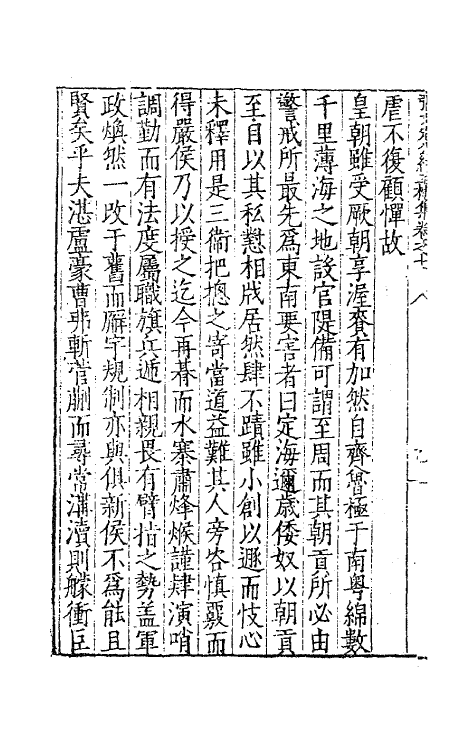 虐不復顧憚故
皇朝雖受厥朝享渥賚有加然自齊魯極于南粤綿數
千里薄海之地設官隄備可謂至周而其朝貢所必由
警戒所最先爲東南要害者曰定海邇歲倭奴以朝貢
至自以其私懟相戕居然肆不蹟雖小創以遯而忮心
未釋用是三衞把摠之寄當道益難其人旁咨慎覈而
得嚴侯乃以授之迄今再朞而水寨肅烽堠謹肆演哨
調勤而有法度屬職旗兵遞相親畏有臂指之勢蓋軍
政煥然一改于舊而廨宇規制亦與俱新侯不爲能且
賢矣乎夫湛盧豪曹弗斬菅蒯而尋常溝瀆則艨衝巨